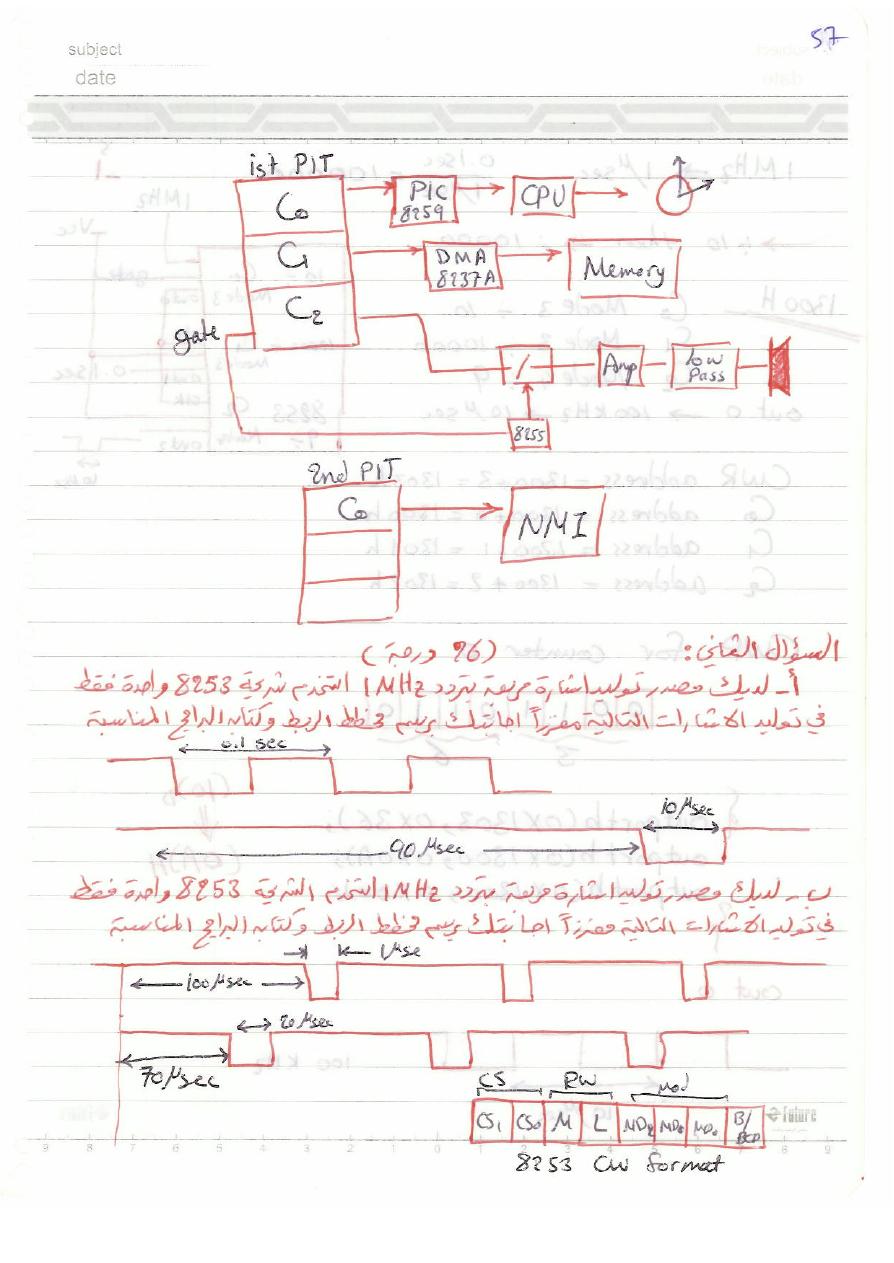 57
subject
date
ist PIT
C0
PIC
8259
CPU
C1
DMA
8237A
Memory
C2
gate
Amp
low
Pass
8255
2nd PIT
C0
NMI
السؤال الثاني: (26 درجة)
أ- لديك مصدر توليد اشارة مربعة بتردد 1MHz استخدم شريحة 8253 واحدة فقط
في توليد الاشارات التالية معززاً اجابتك برسم مخطط الربط وكتابة البرامج المناسبة
0.1 sec
10 μsec
90 μsec
ب- لديك مصدر توليد اشارة مربعة بتردد 1MHz استخدم الشريحة 8253 واحدة فقط
في توليد الاشارات التالية معززاً اجابتك برسم مخطط الربط وكتابة البرامج المناسبة
1 μse
100 μsec
20 μsec
70 μsec
CS RW Mod
CS1 CS0 M L MD2 MD0 B/BCD
future
9 8 7 6 5 4 3 2 1 0 1 2 3 4 5 6 7 8 9
8253 CW format